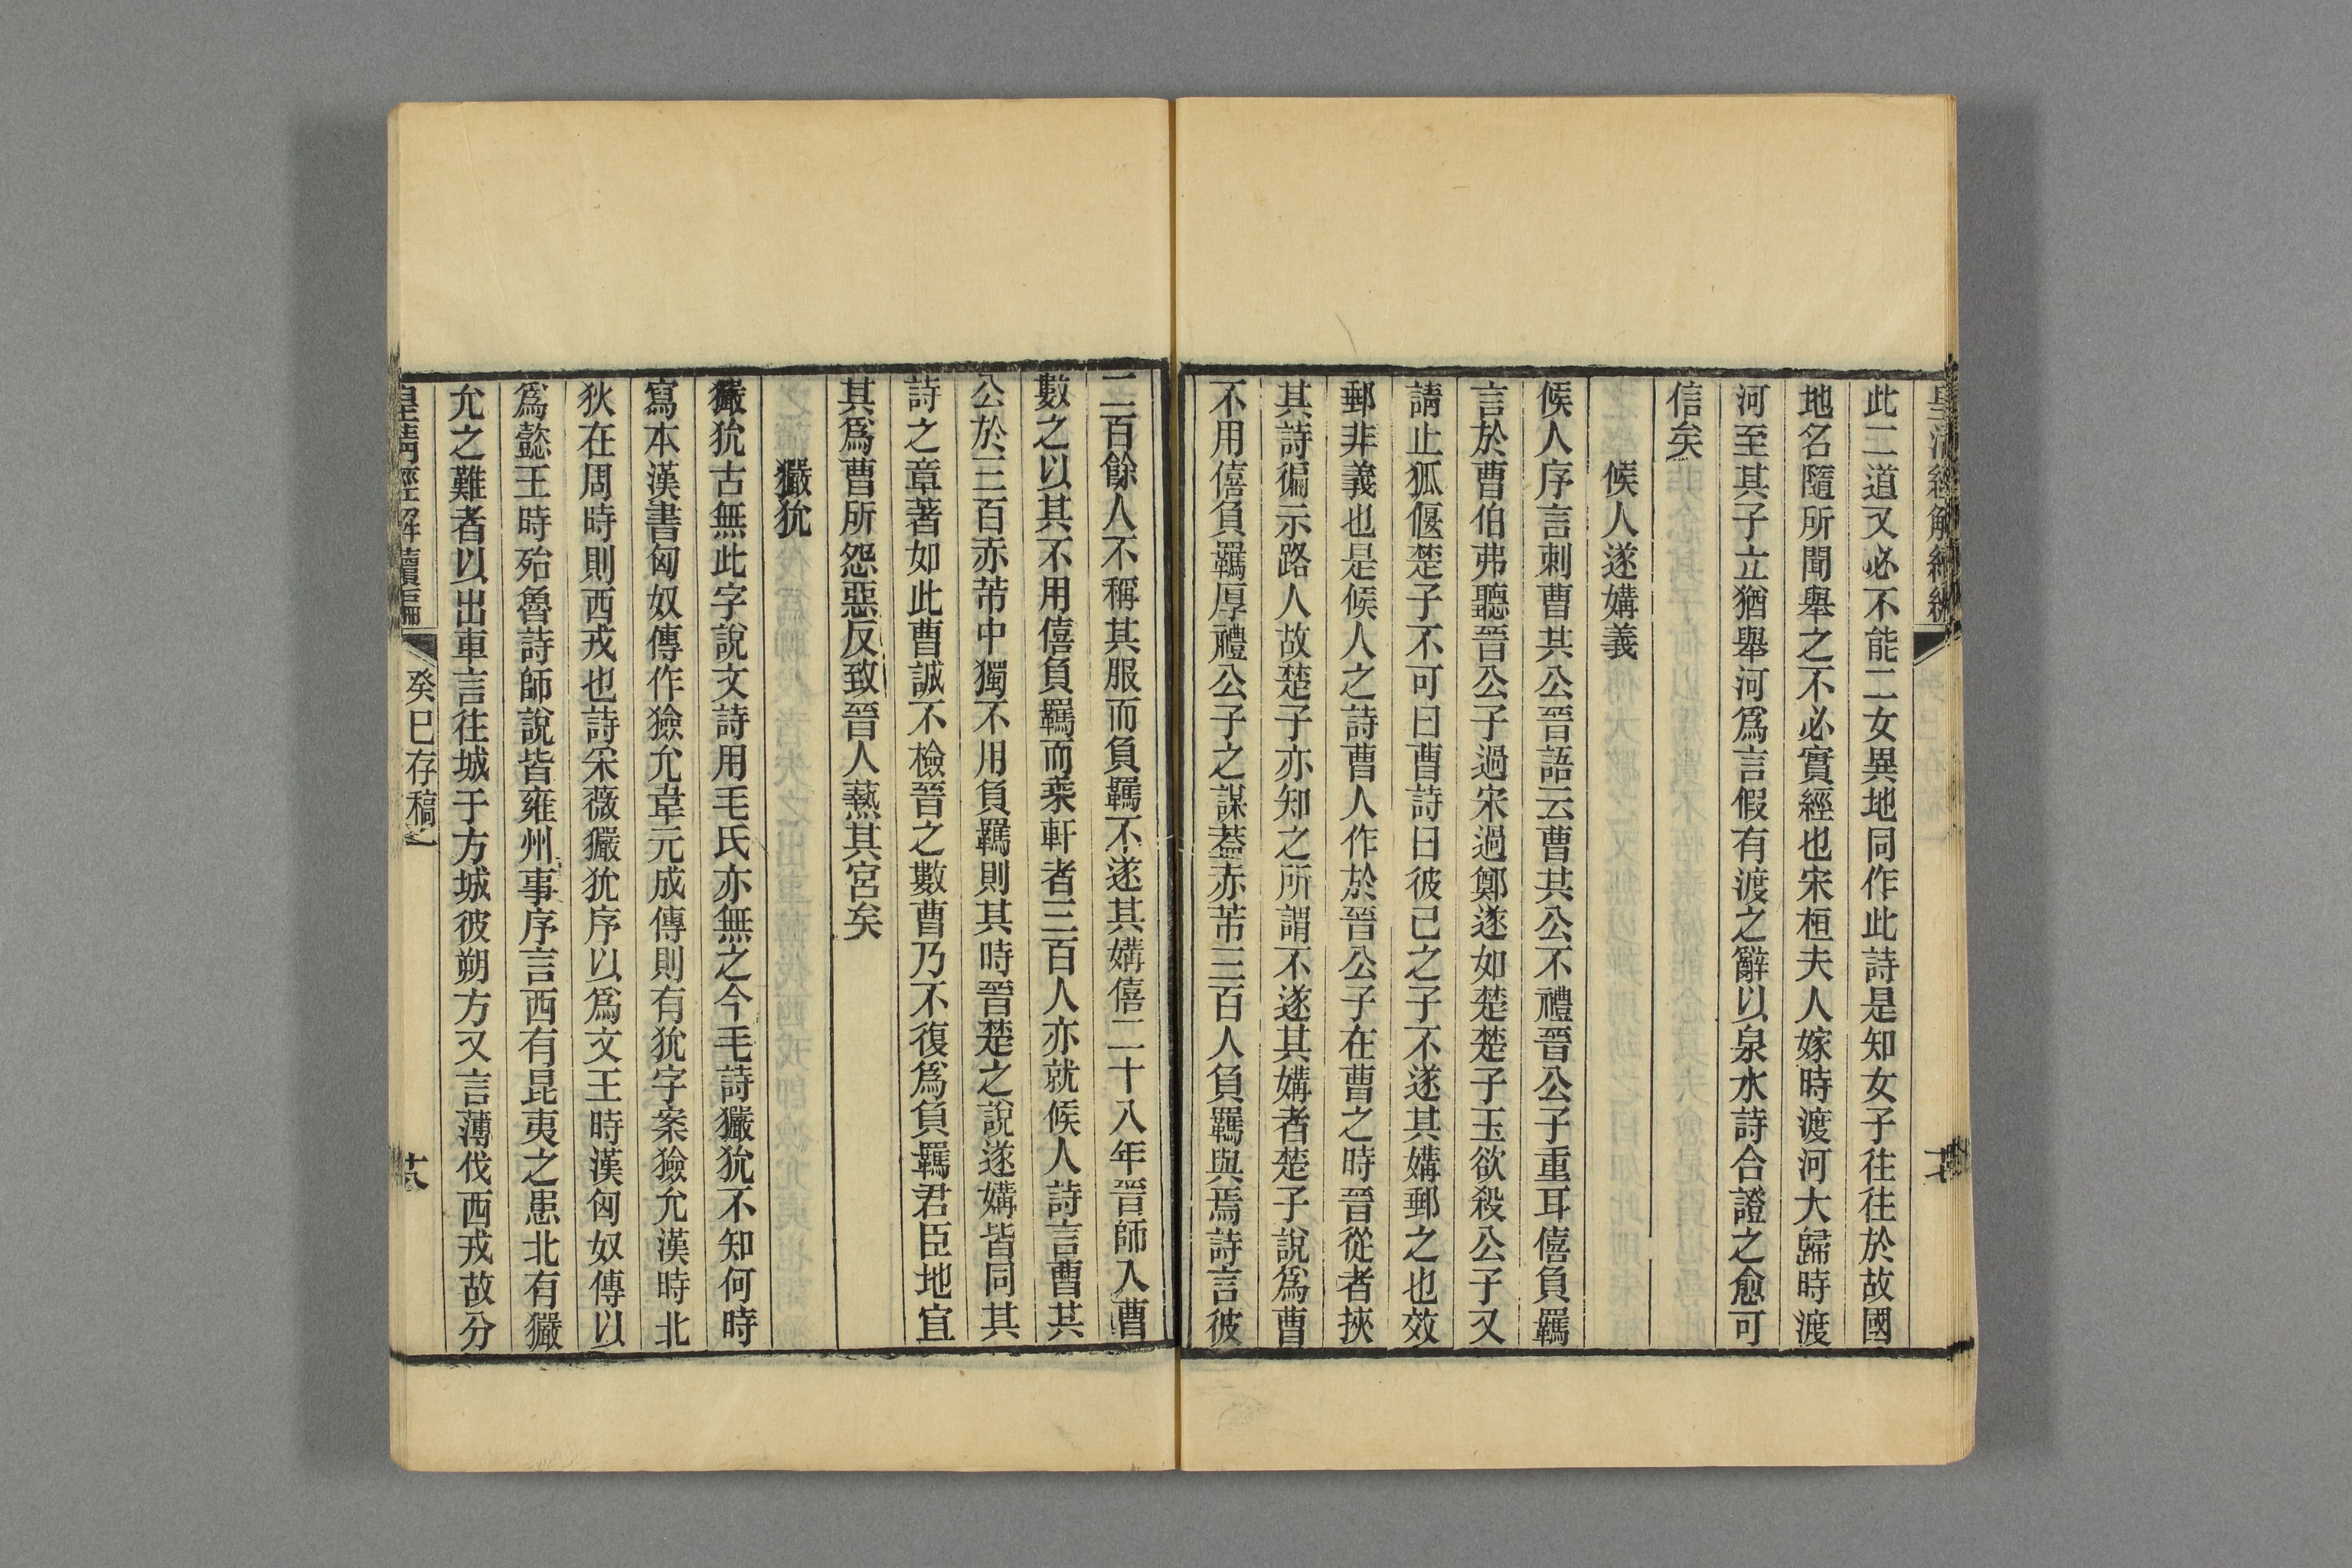 此二道又必不能二女異地同作此詩是知女子往往於故國
地名隨所聞舉之不必實經也宋桓夫人嫁時渡河大歸時渡
河至其子立猶舉河爲言假有渡之辭以泉水詩合證之愈可
信矣
候人遂媾義
候人序言刺曹共公晉語云曹共公不禮晉公子重耳僖負羈
言於曹伯弗聽晉公子過宋過鄭遂如楚楚子玉欲殺公子又
請止狐偃楚子不可曰曹詩曰彼己之子不遂其媾郵之也效
郵非義也是候人之詩曹人作於晉公子在曹之時晉從者挾
其詩徧示路人故楚子亦知之所謂不遂其媾者楚子說爲曹
不用僖負羈厚禮公子之謀蓋赤芾三百人負羈與焉詩言彼
二百餘人不稱其服而負羈不遂其媾僖二十八年晉師入曹
數之以其不用僖負羈而乘軒者三百人亦就候人詩言曹共
公於三百赤芾中獨不用負羈則其時晉楚之說遂媾皆同其
詩之章著如此曹誠不檢晉之數曹乃不復爲負羈君臣地宜
其爲曹所怨惡反致晉人爇其宮矣
玁狁
玁狁古無此字說文詩用毛氏亦無之今毛詩玁狁不知何時
寫本漢書匈奴傳作獫允韋元成傳則有狁字案獫允漢時北
狄在周時則西戎也詩采薇玁狁序以爲文王時漢匈奴傳以
爲懿王時殆魯詩師說皆雍州事序言西有昆夷之患北有玁
允之難者以出車言往城于方城彼朔方又言薄伐西戎故分
皇清經解續編 癸巳存稿 十八